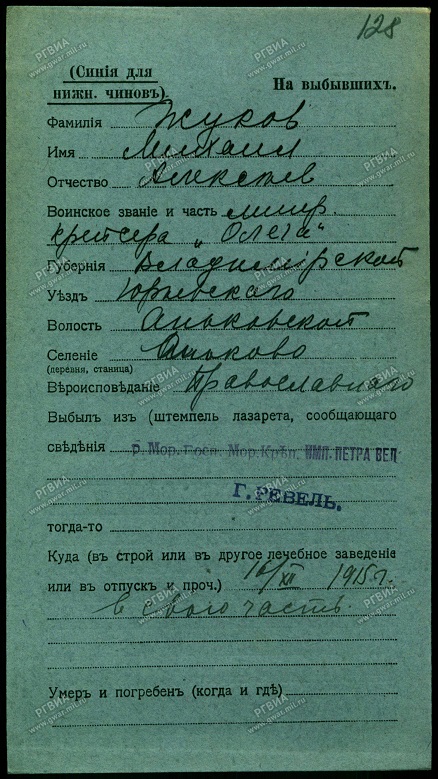 128
(Синія для
нижн. чиновъ).
На выбывшихъ.
Фамилія Жуков
Имя Михаил
Отчество Алексеев
Воинское званіе и часть
крейсера „Олега"
Губернія Владимірской
Уѣздъ Юрьевскаго
Волость Аньковской
Селеніе Аньково
(деревня, станица)
Вѣроисповѣданіе Православнаго
Выбылъ изъ (штемпель лазарета, сообщающаго
свѣдѣнія р. Мор. Госп. Мор. Крѣп. ИМП. ПЕТРА ВЕЛ
Г. РЕВЕЛЬ.
тогда-то
Куда (въ строй или въ другое лечебное заведеніе
или въ отпускъ и проч.) 16/XII 1915 г.
в свою часть
Умеръ и погребенъ (когда и гдѣ)
РГВИА
www.gwar.mil.ru